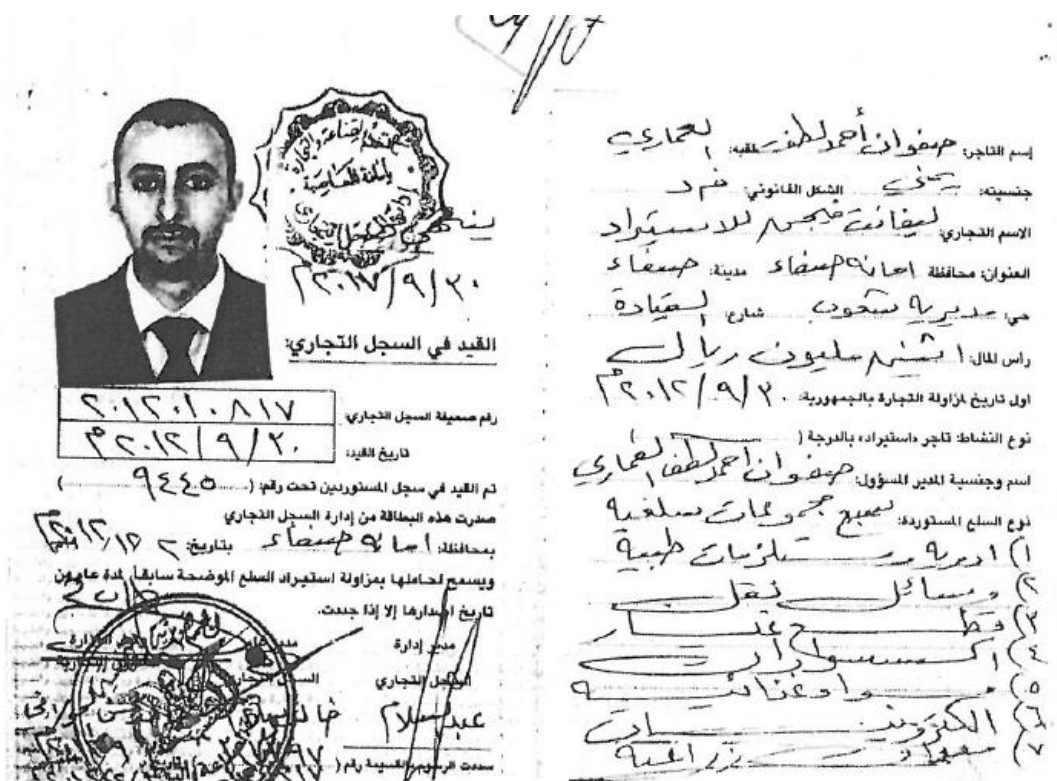 إسم التاجر: صفوان أحمد لطف لقبه: العماري
جنسيته: يمني الشكل القانوني: فرد
الاسم التجاري: للاستيراد
العنوان: محافظة امانة صنعاء مدينة: صنعاء
حي: مديرية شعوب شارع: القيادة
رأس المال: اثنين مليون ريال
اول تاريخ لمزاولة التجارة بالجمهورية: ٢٠١٢/٩/٣٠م
نوع النشاط: تاجر «استيراد» بالدرجة ( )
اسم وجنسية المدير المسؤول: صفوان أحمد لطف العماري
نوع السلع المستوردة: مجموعات سلعية
١) ادويه ومستلزمات طبية
٢) وسائل نقل
٣) قطع غيار
٤) اكسسوارات
٥) مواد غذائية
٦) الكترونيات
٧) زراعية
٢٠١٧/٩/٣٠
القيد في السجل التجاري:
رقم صحيفة السجل التجاري: ٢٠١٢٠١٠٨١٧
تاريخ القيد: ٢٠١٢/٩/٣٠م
تم القيد في سجل المستوردين تحت رقم: ( ٩٤٤٥ )
صدرت هذه البطاقة من إدارة السجل التجاري
بمحافظة: امانة صنعاء بتاريخ:
ويسمح لحاملها بمزاولة استيراد السلع الموضحة سابقاً لمدة عام من
تاريخ اصدارها إلا إذا جددت.
مدير إدارة
السجل التجاري
عبدالسلام
سددت الرسوم بالقسيمة رقم (